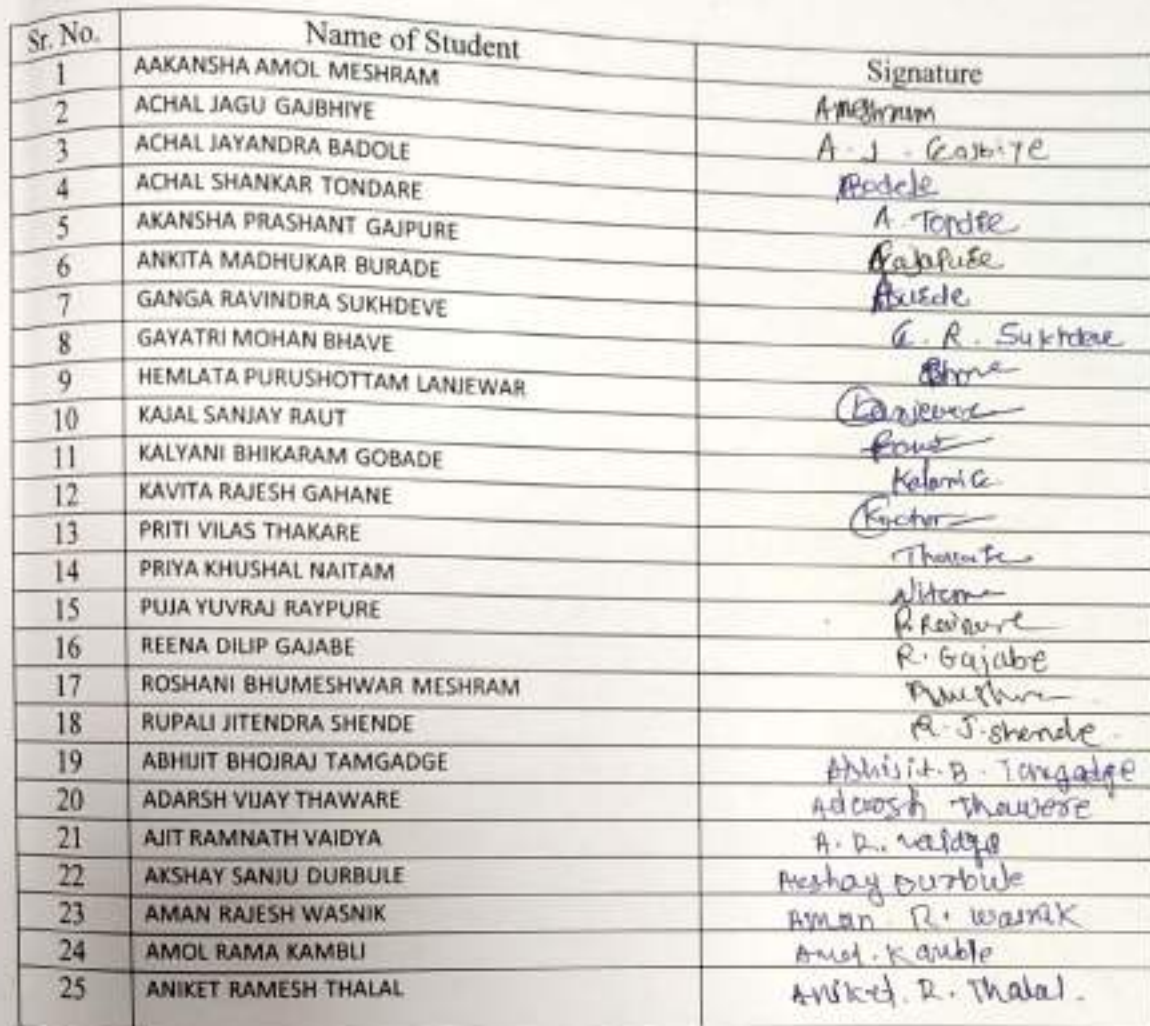 Sr. No. Name of Student Signature
1 AAKANSHA AMOL MESHRAM Ameshram
2 ACHAL JAGU GAJBHIYE A. J. Gajbiye
3 ACHAL JAYANDRA BADOLE Badole
4 ACHAL SHANKAR TONDARE A. Tondre
5 AKANSHA PRASHANT GAJPURE Gajapure
6 ANKITA MADHUKAR BURADE
7 GANGA RAVINDRA SUKHDEVE G. R. Sukhdeve
8 GAYATRI MOHAN BHAVE
9 HEMLATA PURUSHOTTAM LANJEWAR Lanjewar
10 KAJAL SANJAY RAUT Raut
11 KALYANI BHIKARAM GOBADE
12 KAVITA RAJESH GAHANE
13 PRITI VILAS THAKARE
14 PRIYA KHUSHAL NAITAM
15 PUJA YUVRAJ RAYPURE P. Raypure
16 REENA DILIP GAJABE R. Gajabe
17 ROSHANI BHUMESHWAR MESHRAM
18 RUPALI JITENDRA SHENDE R. J. shende.
19 ABHIJIT BHOJRAJ TAMGADGE Abhijit. B. Tamgadge
20 ADARSH VIJAY THAWARE Adarosh Thawere
21 AJIT RAMNATH VAIDYA A. R. vaidya
22 AKSHAY SANJU DURBULE Akshay Durbule
23 AMAN RAJESH WASNIK Aman R. Wasnik
24 AMOL RAMA KAMBLI Amol. Kamble
25 ANIKET RAMESH THALAL Aniket. R. Thalal.